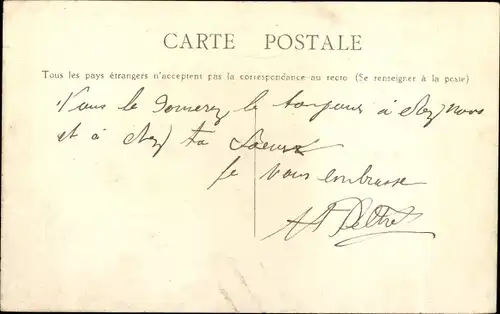 CARTE POSTALE
Tous les pays étrangers n'acceptent pas la correspondance au recto (Se renseigner à la poste)
Vous le donnerez le bonjour à chez nous
et à chez ta Soeur
je vous embrasse